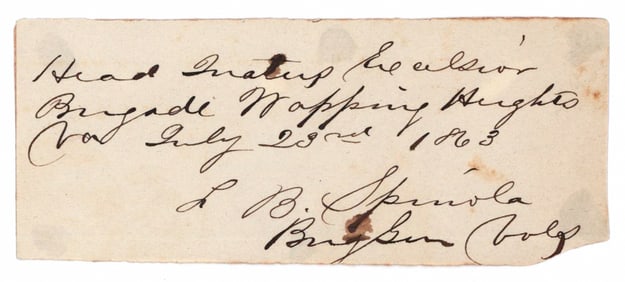 Head Quaters Excelsior
Brigade Wapping Heights
Va July 23rd 1863
F B. Spinola
Brig Gen Vols